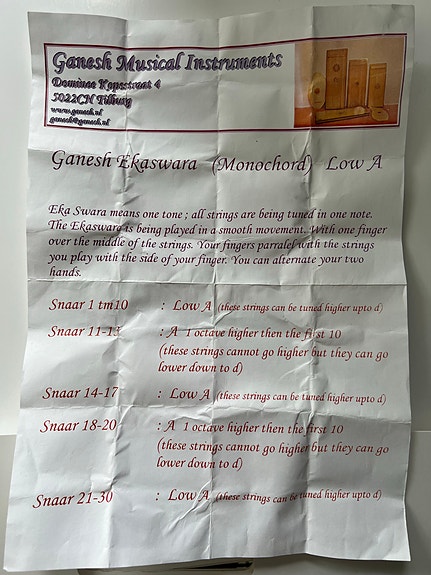 Ganesh Musical Instruments
Dominee Kopsstraat 4
5022CN Tilburg
www.ganesh.nl
ganesh@ganesh.nl
Ganesh Ekaswara (Monochord) Low A
Eka Swara means one tone ; all strings are being tuned in one note.
The Ekaswara is being played in a smooth movement. With one finger
over the middle of the strings. Your fingers parralel with the strings
you play with the side of your finger. You can alternate your two
hands.
Snaar 1 tm10 : Low A (these strings can be tuned higher upto d)
Snaar 11-13 : A 1 octave higher then the first 10
(these strings cannot go higher but they can go
lower down to d)
Snaar 14-17 : Low A (these strings can be tuned higher upto d)
Snaar 18-20 : A 1 octave higher then the first 10
(these strings cannot go higher but they can go
lower down to d)
Snaar 21-30 : Low A (these strings can be tuned higher upto d)